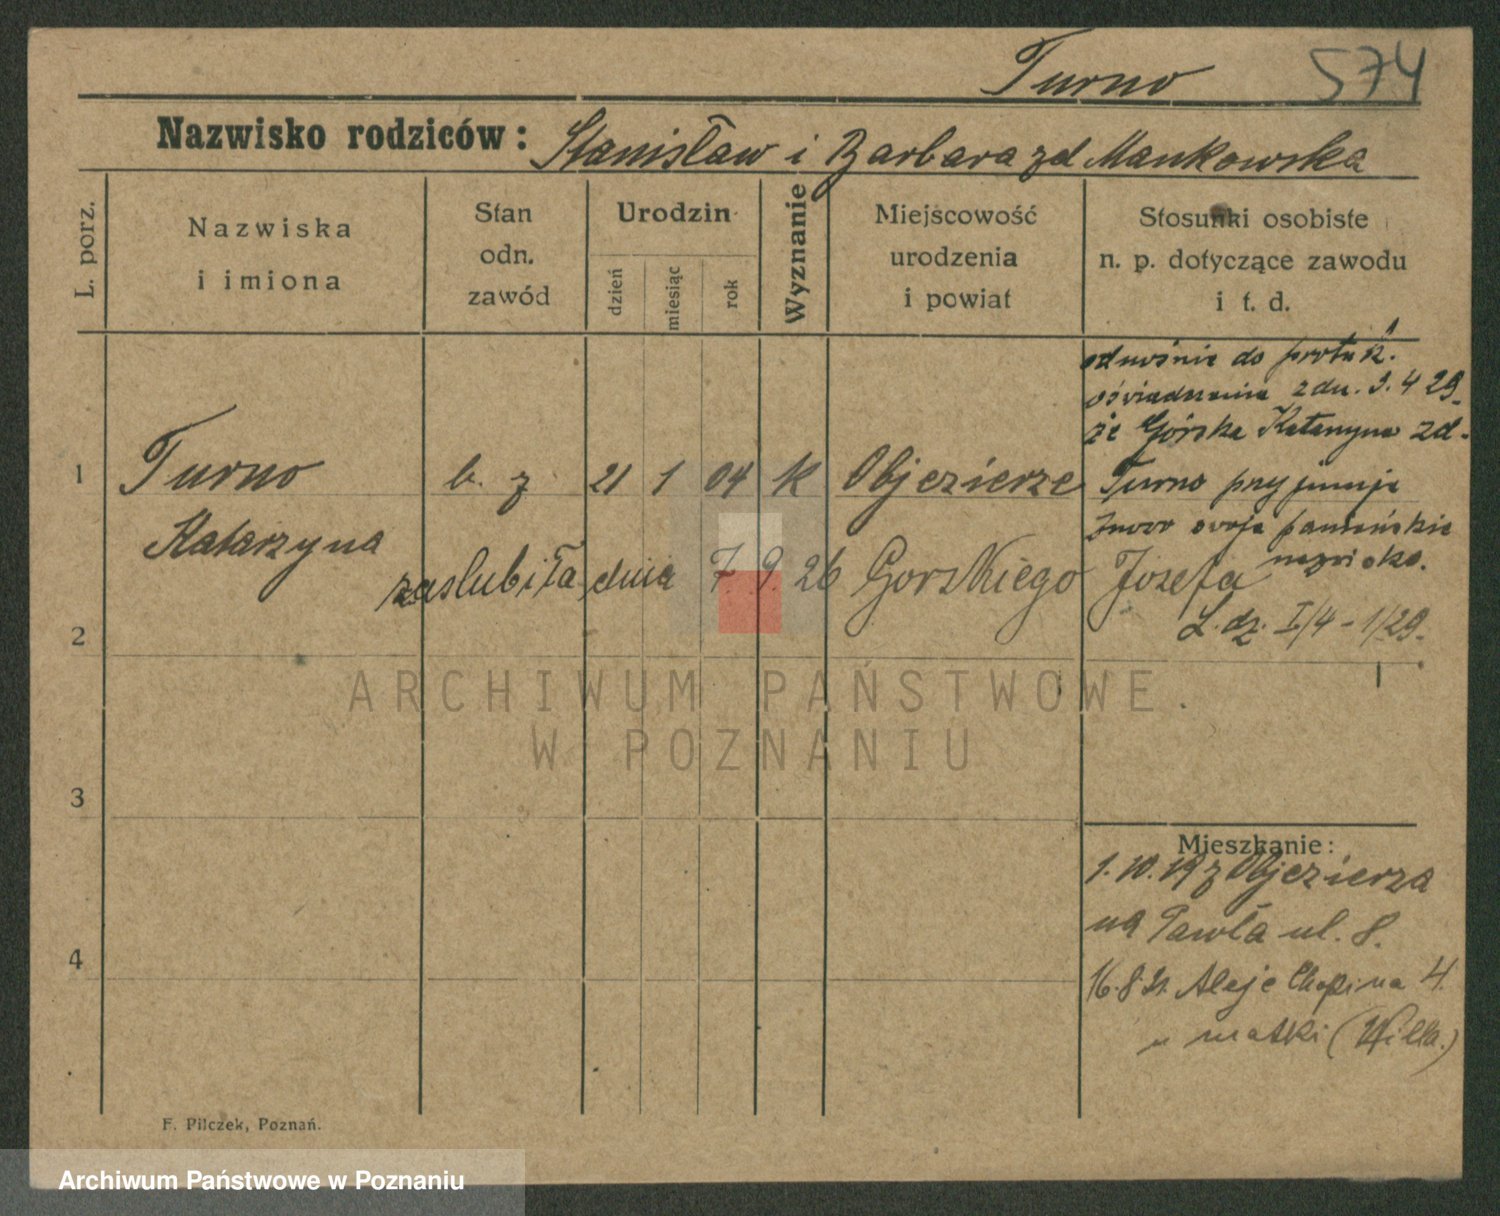 Turno 574
Nazwisko rodziców: Stanisław i Barbara zd Mankowska
L. porz.
Nazwiska
i imiona
Stan
odn.
zawód
Urodzin
dzień
miesiąc
rok
Wyznanie
Miejscowość
urodzenia
i powiat
Stosunki osobiste
n. p. dotyczące zawodu
i t. d.
odnośnie do protok.
oświadczenia z dn. 3. 4 29
że Górska Katarzyna zd.
1 Turno b. z 21 1 04 k Objezierze Turno przyjmuje
Katarzyna
znowu swoje panieńskie
nazwisko.
zaslubiła dnia 7. 9. 26 Gorskiego Josefa
L. dz. I/4 - 1/29.
2
3
4
Mieszkanie:
1. 10. 19 z Objezierza
na Pawła ul. 8.
16. 8. 21. Aleje Chopina 4.
u matki (Willa.)
F. Pilczek, Poznań.
ARCHIWUM PAŃSTWOWE
W POZNANIU
Archiwum Państwowe w Poznaniu